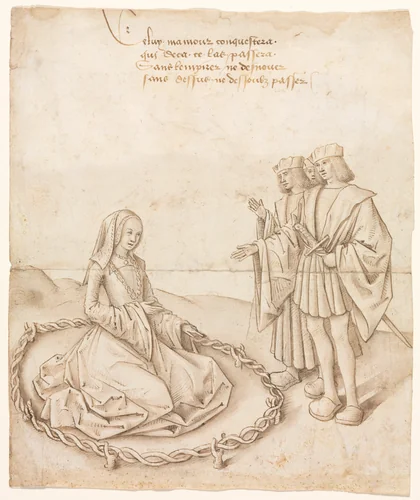 Celuy mamour conquestera
qui deca ce las passera
Sans rempirer ne desnouer
sans dessus ne dessoubz passer